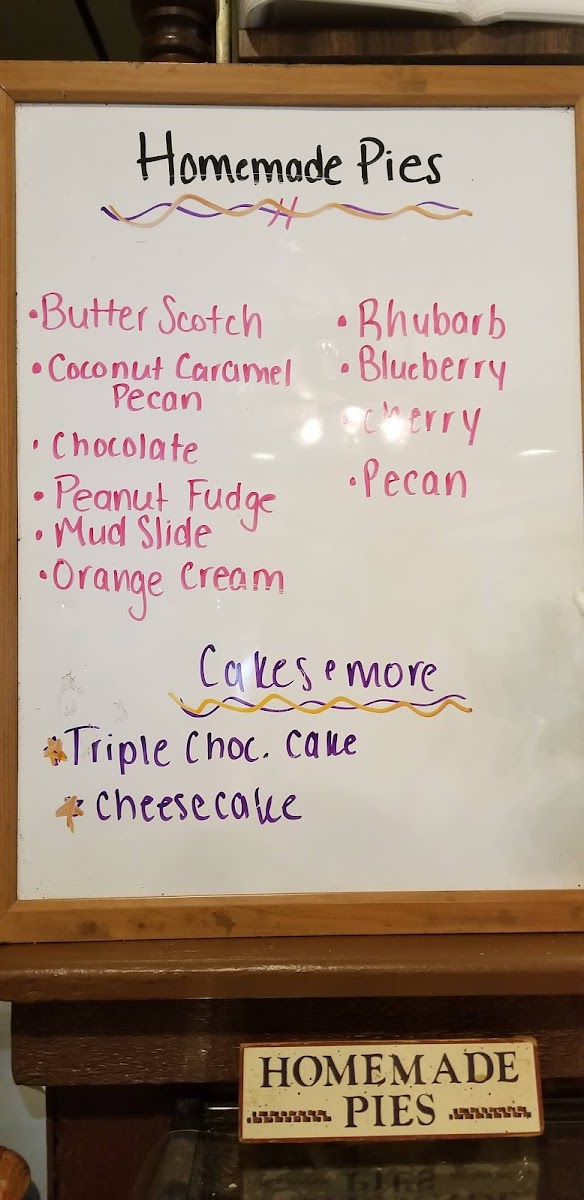 Homemade Pies
• Butter Scotch
• Coconut Caramel
Pecan
• Chocolate
• Peanut Fudge
• Mud Slide
• Orange Cream
• Rhubarb
• Blueberry
• cherry
• Pecan
Cakes & more
* Triple Choc. Cake
* Cheesecake
HOMEMADE
PIES